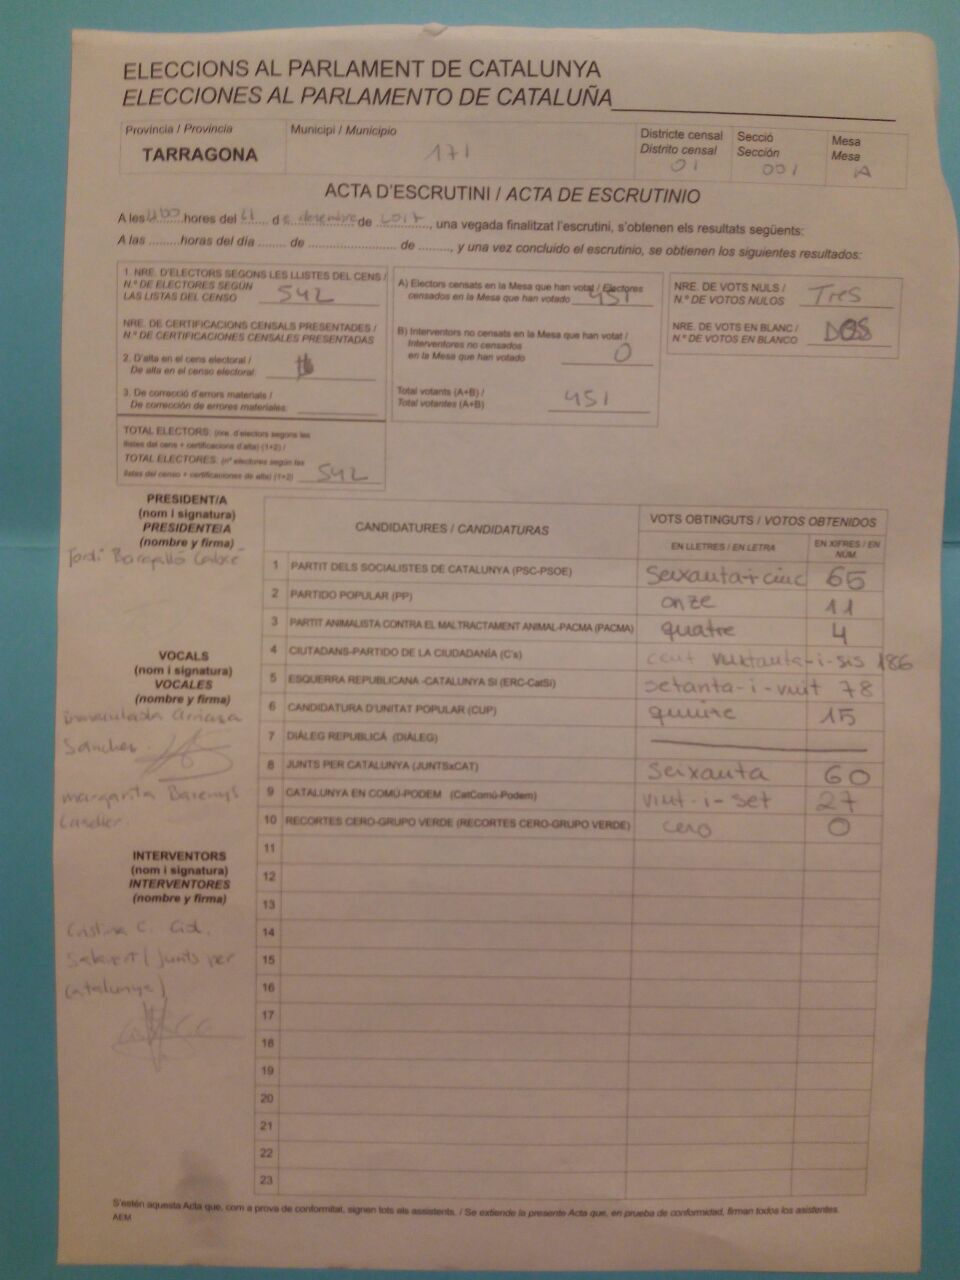 ELECCIONS AL PARLAMENT DE CATALUNYA
ELECCIONES AL PARLAMENTO DE CATALUÑA
Província / Provincia
TARRAGONA
Municipi / Municipio
171
Districte censal
Distrito censal
01
Secció
Sección
001
Mesa
Mesa
A
ACTA D'ESCRUTINI / ACTA DE ESCRUTINIO
A les hores del 21 de desembre de 2017, una vegada finalitzat l'escrutini, s'obtenen els resultats següents:
A las .........horas del día ....... de ...................... de ........, y una vez concluido el escrutinio, se obtienen los siguientes resultados:
1. NRE. D'ELECTORS SEGONS LES LLISTES DEL CENS /
N.º DE ELECTORES SEGÚN
LAS LISTAS DEL CENSO 542
NRE. DE CERTIFICACIONS CENSALS PRESENTADES /
N.º DE CERTIFICACIONES CENSALES PRESENTADAS
2. D'alta en el cens electoral /
De alta en el censo electoral:
3. De correcció d'errors materials /
De corrección de errores materiales:
TOTAL ELECTORS: (nre. d'electors segons les
llistes del cens + certificacions d'alta) (1+2) /
TOTAL ELECTORES: (nº electores según las
listas del censo + certificaciones de alta) (1+2) 542
A) Electors censats en la Mesa que han votat / Electores
censados en la Mesa que han votado 451
B) Interventors no censats en la Mesa que han votat /
Interventores no censados
en la Mesa que han votado 0
Total votants (A+B) /
Total votantes (A+B) 451
NRE. DE VOTS NULS /
N.º DE VOTOS NULOS TRES
NRE. DE VOTS EN BLANC /
N.º DE VOTOS EN BLANCO DOS
PRESIDENT/A
(nom i signatura)
PRESIDENTE/A
(nombre y firma)
Jordi Bargalló
VOCALS
(nom i signatura)
VOCALES
(nombre y firma)
Inmaculada
Sánchez
Margarita Barenys
INTERVENTORS
(nom i signatura)
INTERVENTORES
(nombre y firma)
Cristina C. Cid
(Junts per
Catalunya)
CANDIDATURES / CANDIDATURAS
VOTS OBTINGUTS / VOTOS OBTENIDOS
EN LLETRES / EN LETRA
EN XIFRES / EN NÚM.
1 PARTIT DELS SOCIALISTES DE CATALUNYA (PSC-PSOE) Seixanta-i cinc 65
2 PARTIDO POPULAR (PP) onze 11
3 PARTIT ANIMALISTA CONTRA EL MALTRACTAMENT ANIMAL-PACMA (PACMA) quatre 4
4 CIUTADANS-PARTIDO DE LA CIUDADANÍA (C's) cent vuitanta-i-sis 186
5 ESQUERRA REPUBLICANA -CATALUNYA SÍ (ERC-CatSí) setanta-i-vuit 78
6 CANDIDATURA D'UNITAT POPULAR (CUP) quinze 15
7 DIÀLEG REPUBLICÀ (DIÀLEG)
8 JUNTS PER CATALUNYA (JUNTSxCAT) Seixanta 60
9 CATALUNYA EN COMÚ-PODEM (CatComú-Podem) vint-i-set 27
10 RECORTES CERO-GRUPO VERDE (RECORTES CERO-GRUPO VERDE) cero 0
11
12
13
14
15
16
17
18
19
20
21
22
23
S'estén aquesta Acta que, com a prova de conformitat, signen tots els assistents. / Se extiende la presente Acta que, en prueba de conformidad, firman todos los asistentes.
AEM